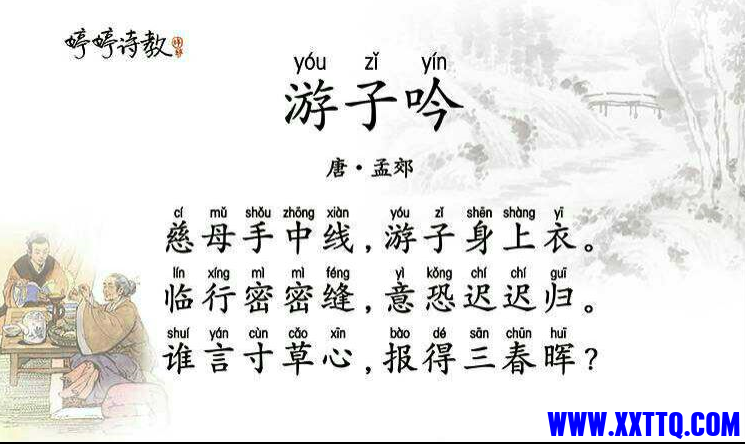 婷婷诗教
yóu zǐ yín
游子吟
唐·孟郊
cí mǔ shǒu zhōng xiàn yóu zǐ shēn shàng yī
慈母手中线,游子身上衣。
lín xíng mì mì féng yì kǒng chí chí guī
临行密密缝,意恐迟迟归。
shuí yán cùn cǎo xīn bào dé sān chūn huī
谁言寸草心,报得三春晖?
WWW.XXTTQ.COM